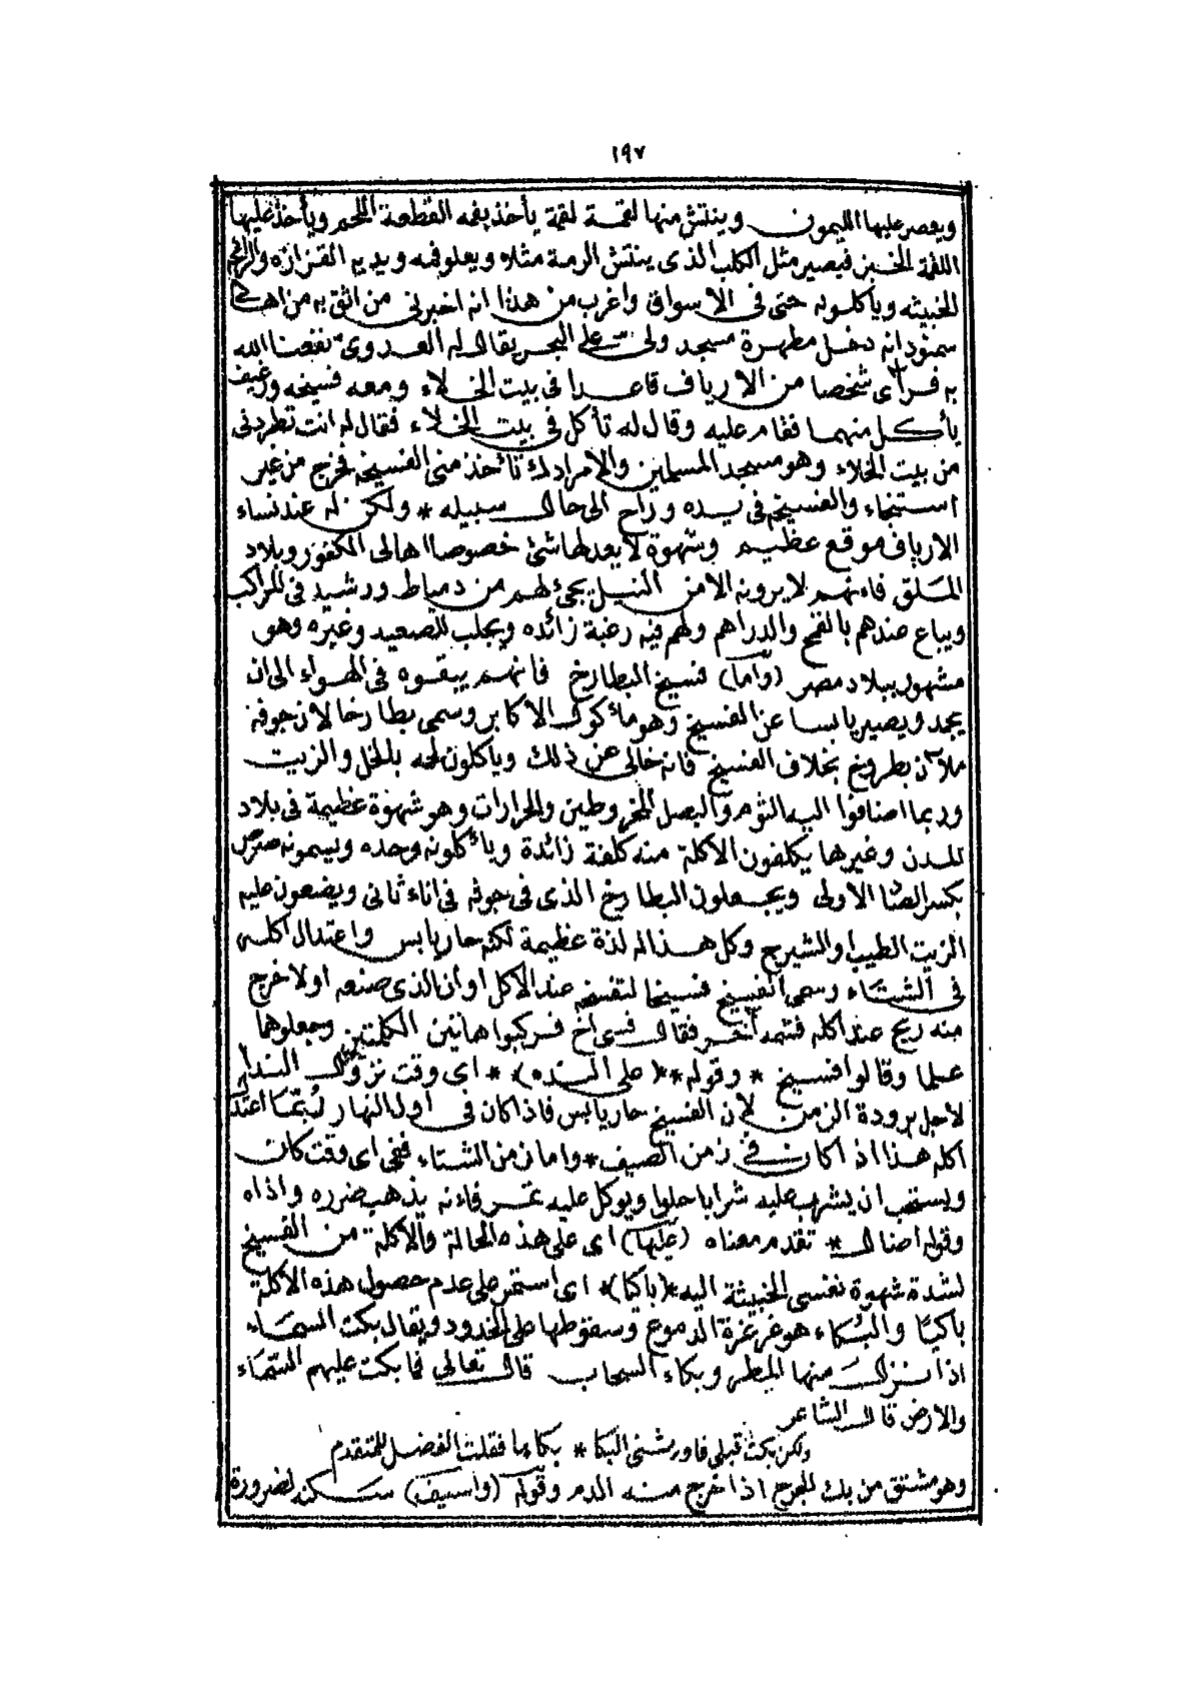 ١٩٧
ويعصر عليها الليمون وينتش منها لقمة لقمة يأخذ بفمه القطعة اللحم ويأخذ عليها
اللقمة الخبز فيصير مثل الكلب الذى ينتش الرمة مثلاه ويعلو فمه ويديه القزازه والرائحه
الخبيثه وياكلونه حتى فى الاسواق واغرب من هذا انه اخبرنى من اثق به من اهل
سمنود انه دخل مطهرة مسجد ولى على البحر يقال له العدوى نفعنا الله
به فرأى شخصا من الارياف قاعدا فى بيت الخلاء ومعه فسيخه ورغيف
يأكل منهما فقام عليه وقال له تأكل فى بيت الخلاء فقال له انت تطردنى
من بيت الخلاء وهو مسجد المسلمين والامرادك تأخذ منى الفسيخه فخرج من غير
استنجاء والفسيخه فى يده وراح الى حال سبيله * ولكن له عند نساء
الارياف موقع عظيم وشهوة لا يعدلها شئ خصوصا اهالى الكفور وبلاد
الملق فانهم لا يرونه الا من النيل يجئ لهم من دمياط ورشيد فى المراكب
ويباع عندهم بالقمح والدراهم ولهم فيه رغبة زائده ويجلب للصعيد وغيره وهو
مشهور ببلاد مصر (واما) فسيخ البطارخ فانهم يبقوه فى الهواء الى ان
يجمد ويصير يابسا عن الفسيخ وهو مأكول الاكابر وسمى بطارخا لان جوفه
ملآن بطروخ بخلاف الفسيخ فانه خالى عن ذلك وياكلون لحمه بالخل والزيت
وربما اضافوا اليه الثوم والبصل المخروطين والحرارات وهو شهوة عظيمة فى بلاد
المدن وغيرها يكلفون الاكلة منه كلفة زائدة ويأكلونه وحده ويسمونه صرص
بكسر الصاد الاولى ويجعلون البطارخ الذى فى جوفه فى اناء ثانى ويضعون عليه
الزيت الطيب والشيرج وكل هذا له لذة عظيمة لكنه حار يابس واعتدال اكله
فى الشتاء وسمى الفسيخ فسيخا لتفسخه عند الاكل او ان الذى صنعه اولا خرج
منه ريح عند اكله فشمه آخر فقال فسى اخ فركبوا هاتين الكلمتين وجعلوهما
علما وقالوا فسيخ * وقوله * (على النده) * اى وقت نزول الندا
لاجل برودة الزمن لان الفسيخ حار يابس فاذا كان فى اول النهار ربما اعتدل
اكله هذا اذا كان فى زمن الصيف * واما زمن الشتاء ففى اى وقت كان
ويستحب ان يشرب عليه شرابا حلوا ويوكل عليه تمر فانه يذهب ضرره واذاه
وقوله اضال * تقدم معناه (عليها) اى على هذه الحالة والاكلة من الفسيخ
لشدة شهوة نفسى الخبيثة اليه * (باكيا) * اى استمر على عدم حصول هذه الاكلة
باكيًا والبكاء هو غرغرة الدموع وسقوطها على الخدود ويقال بكت السماء
اذا نزل منها المطر وبكاء السحاب قال تعالى فما بكت عليهم السماء
والارض قال الشاعر
ولكن بكت قبلى فاورثنى البكا * بكاءها فقلت الفضل للمتقدم
وهو مشتق من بك الجرح اذا خرج منه الدم وقوله (واسيف) سكنه لضرورة